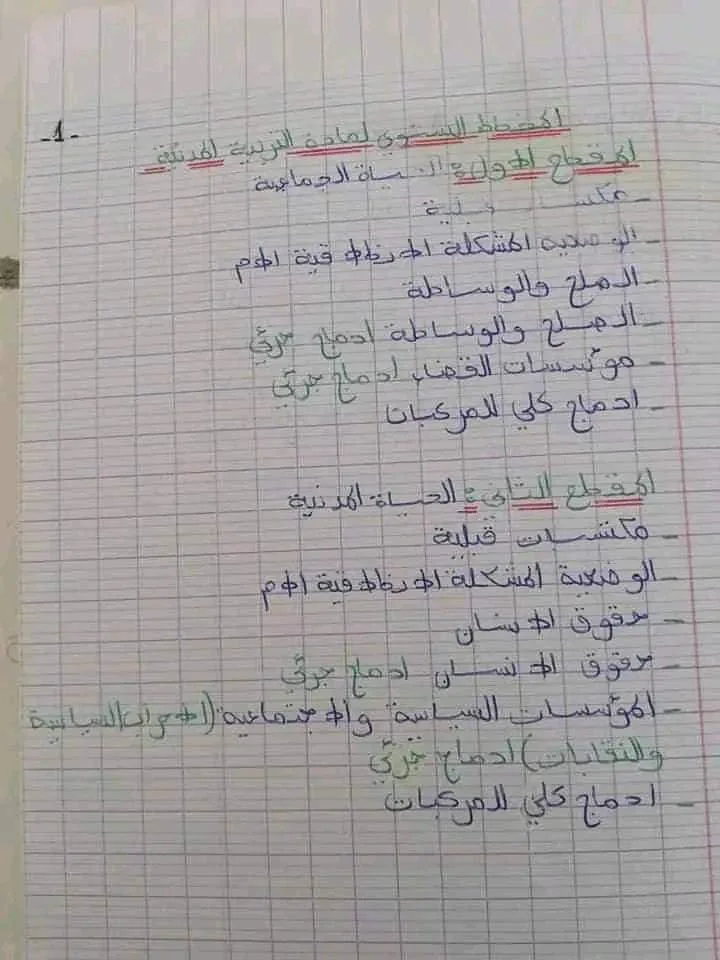 -1-
المخطط السنوي لمادة التربية المدنية
المقطع الأول: الحياة الجماعية
- مكتسبات قبلية
- الوضعية المشكلة الانطلاقية الأم
- الصلح والوساطة
- الصلح والوساطة ادماج جزئي
- مؤسسات القضاء ادماج جزئي
- ادماج كلي للمركبات
المقطع الثاني: الحياة المدنية
- مكتسبات قبلية
- الوضعية المشكلة الانطلاقية الام
- حقوق الانسان
- حقوق الانسان ادماج جزئي
- المؤسسات السياسة والاجتماعية (الاحزاب السياسية
والنقابات) ادماج جزئي
- ادماج كلي للمركبات